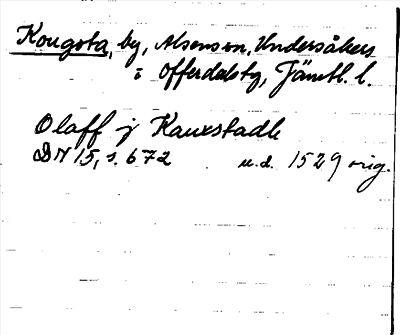 Kougsta, by, Alsens sn, Undersåkers
o Offerdalstg, Jämtl. l.
Olaff j Kauxstadh
DN 15, s. 672 u.d. 1529 orig.